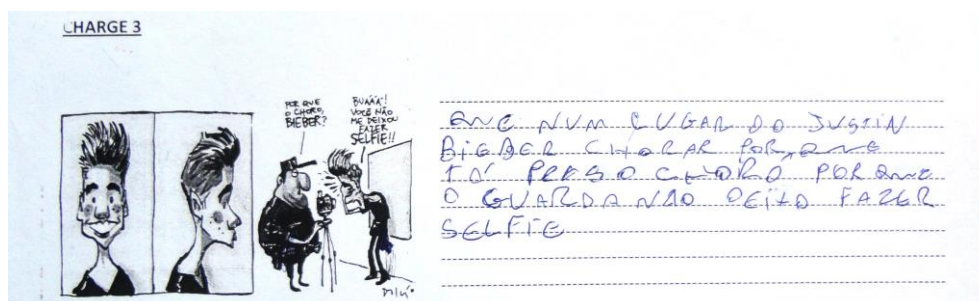 CHARGE 3
POR QUE
O CHORO,
BIEBER?
BUÁÁÁ!
VOCÊ NÃO
ME DEIXOU
FAZER
SELFIE!!
QUE NUM LUGAR DO JUSTIN
BIEBER CHORAR POR QUE
TÁ PRESO CHORO PORQUE
O GUARDA NÃO DEIXO FAZER
SELFIE